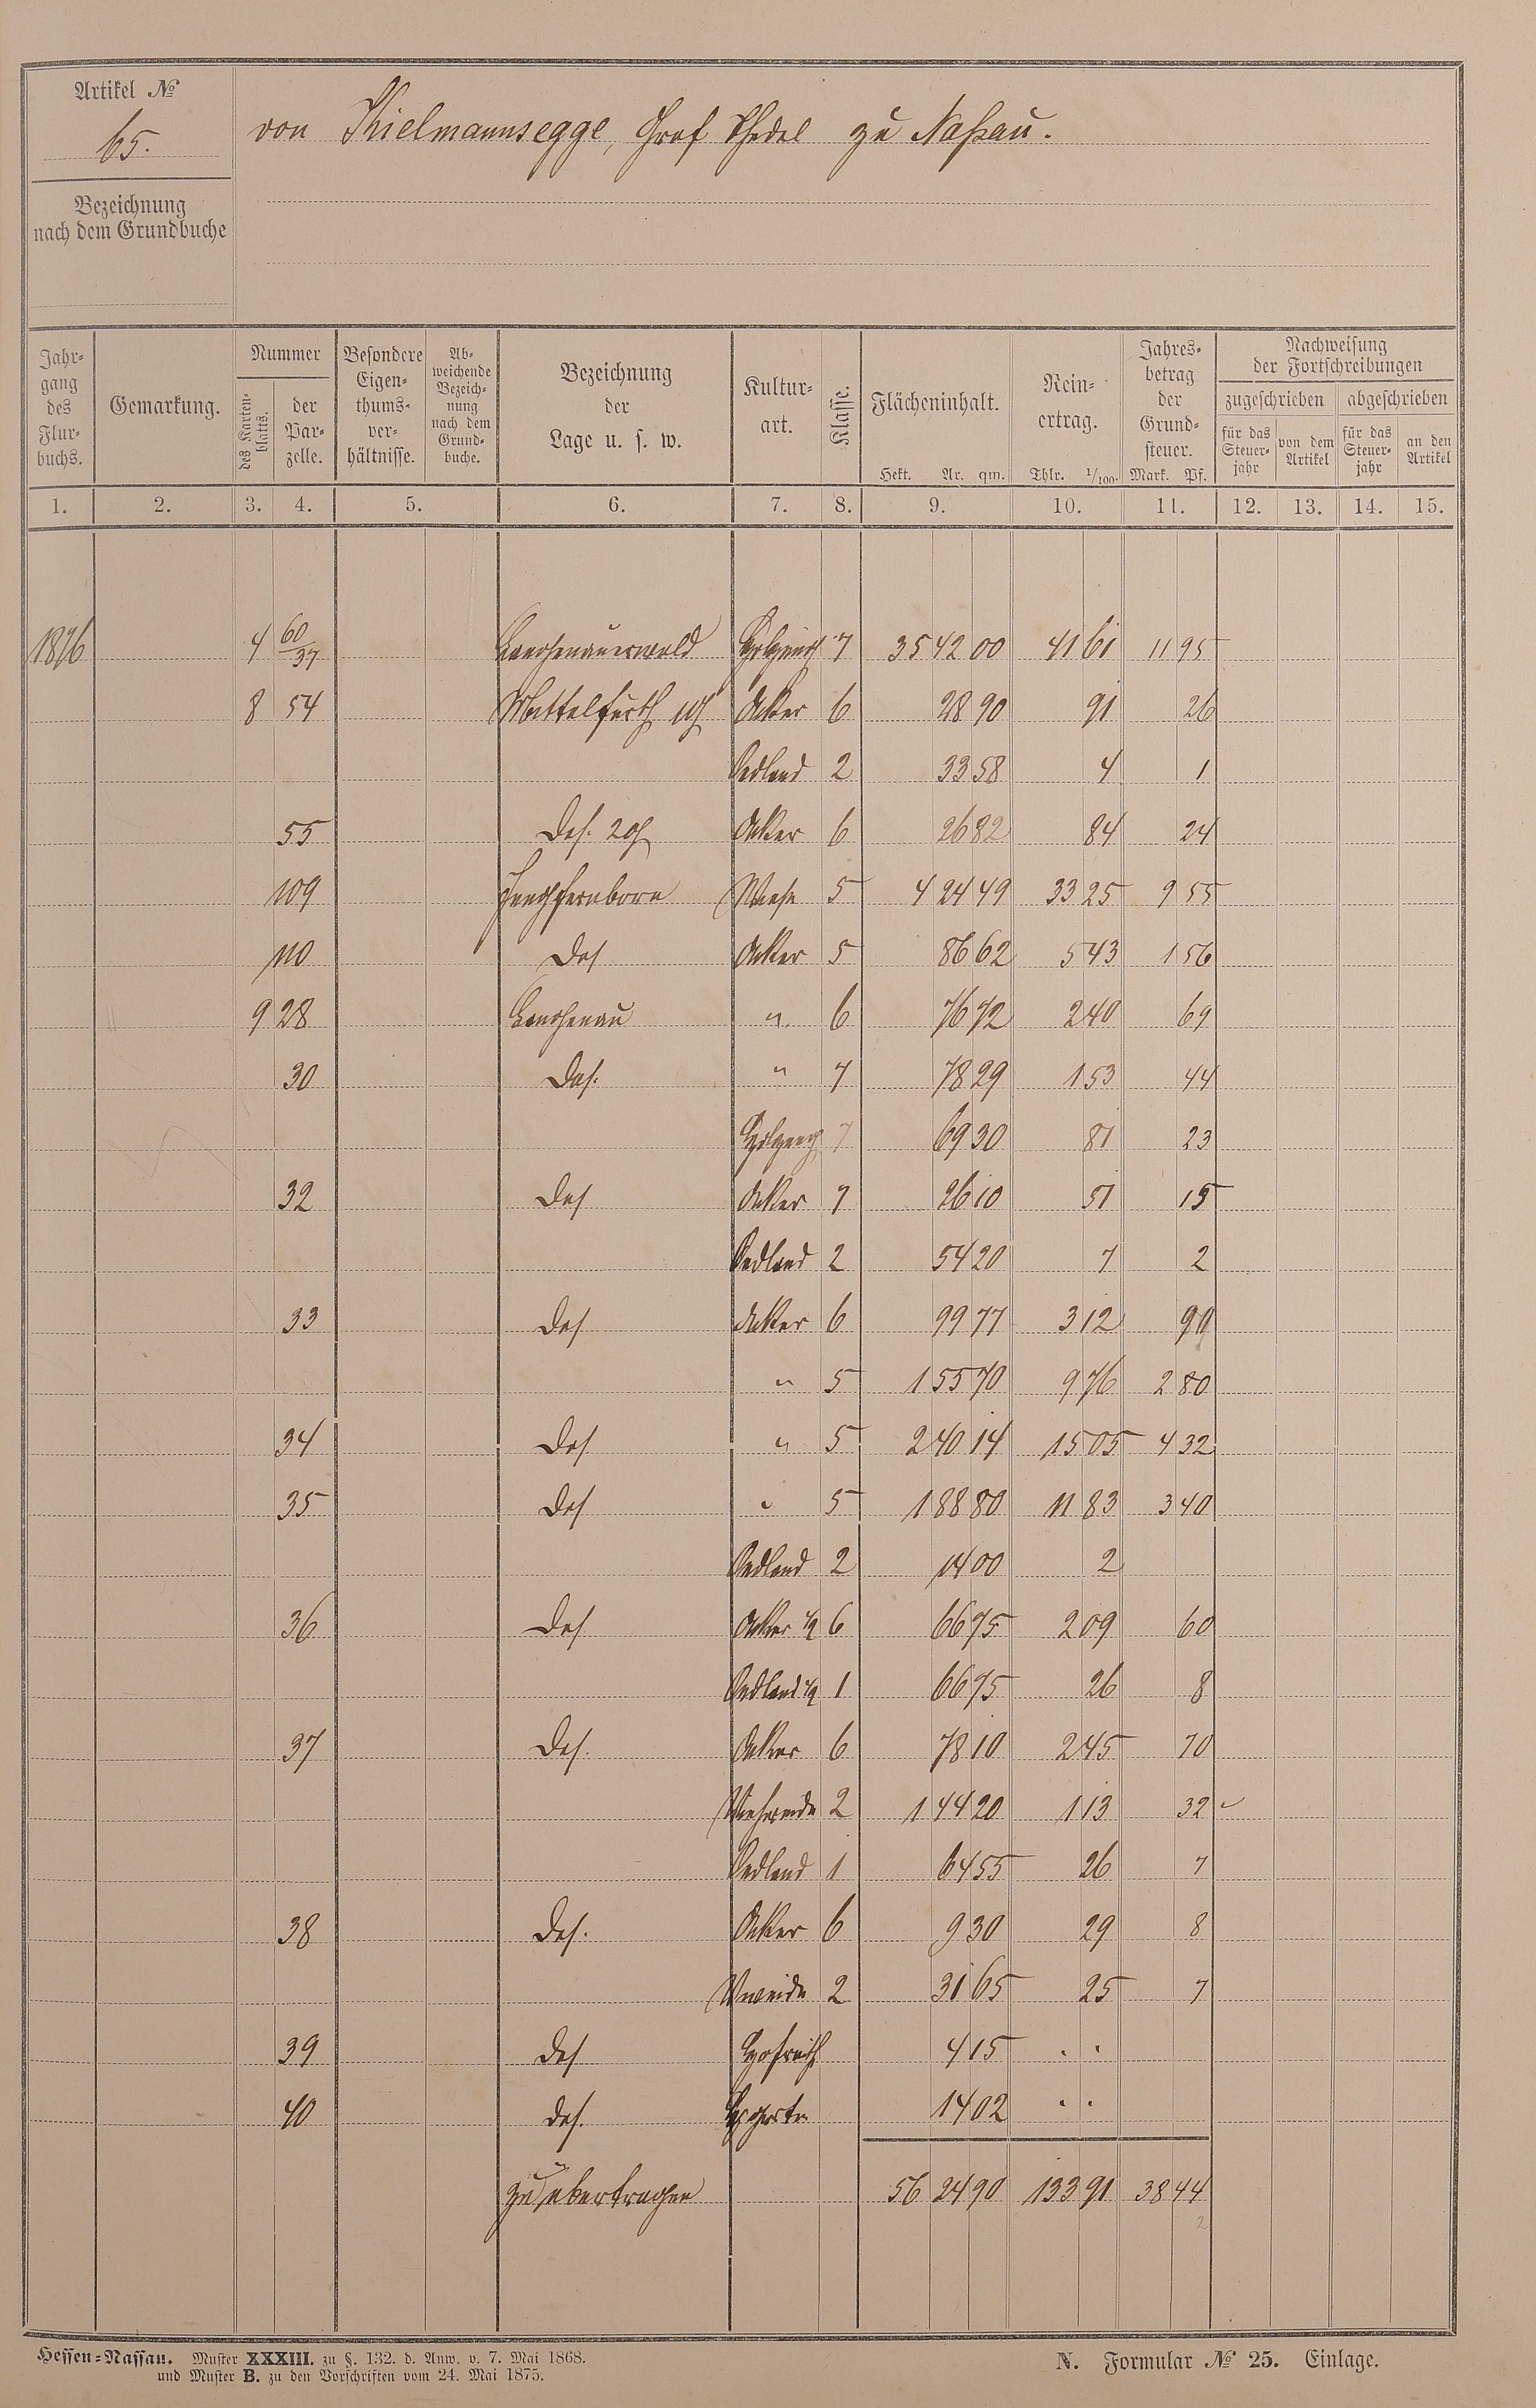 Artikel No
65.
von Kielmannsegge, Graf Thedel zu Naßau.
Bezeichnung
nach dem Grundbuche
Jahr-
gang
des
Flur-
buchs.
Gemarkung.
Nummer
des Karten-
blatts.
der
Par-
zelle.
Besondere
Eigen-
thums-
ver-
hältnisse.
Ab-
weichende
Bezeich-
nung
nach dem
Grund-
buche.
Bezeichnung
der
Lage u. s. w.
Kultur-
art.
Klasse.
Flächeninhalt.
Hekt. Ar. qm.
Rein-
ertrag.
Thlr. 1/100.
Jahres-
betrag
der
Grund-
steuer.
Mark. Pf.
Nachweisung
der Fortschreibungen
zugeschrieben abgeschrieben
für das
Steuer-
jahr
von dem
Artikel
für das
Steuer-
jahr
an den
Artikel
1. 2. 3. 4. 5. 6. 7. 8. 9. 10. 11. 12. 13. 14. 15.
1876 4 60/37 Langenauerwald Holzung 7 35 42 00 41 61 11 95
8 54 Mittelfurth Acker 6 28 90 91 26
Oedland 2 33 58 4 1
55 Das. 2 Acker 6 26 82 84 24
109 Jungfernborn Wiese 5 4 24 49 33 25 9 55
110 Das Acker 5 86 62 5 43 1 56
9 28 Langenau " 6 76 72 2 40 69
30 Das. " 7 78 29 1 53 44
Holzung 7 69 30 81 23
32 Das Acker 7 26 10 51 15
Oedland 2 54 20 7 2
33 Das Acker 6 99 77 3 12 90
" 5 1 55 70 9 76 2 80
34 Das " 5 2 40 14 15 05 4 32
35 Das " 5 1 88 80 11 83 3 40
Oedland 2 14 00 2
36 Das Acker 1/2 6 66 75 2 09 60
Oedland 1/2 1 66 75 26 8
37 Das. Acker 6 78 10 2 45 70
Viehweide 2 1 44 20 1 13 32
Oedland 1 64 55 26 7
38 Das. Acker 6 9 30 29 8
Vweide 2 31 65 25 7
39 Das Hofraith 4 15 . .
40 das. Hgarten 14 02 . .
zu übertragen 56 24 90 133 91 38 44
2
Hessen-Nassau. Muster XXXIII. zu §. 132. d. Anw. v. 7. Mai 1868.
und Muster B. zu den Vorschriften vom 24. Mai 1875.
N. Formular No 25. Einlage.